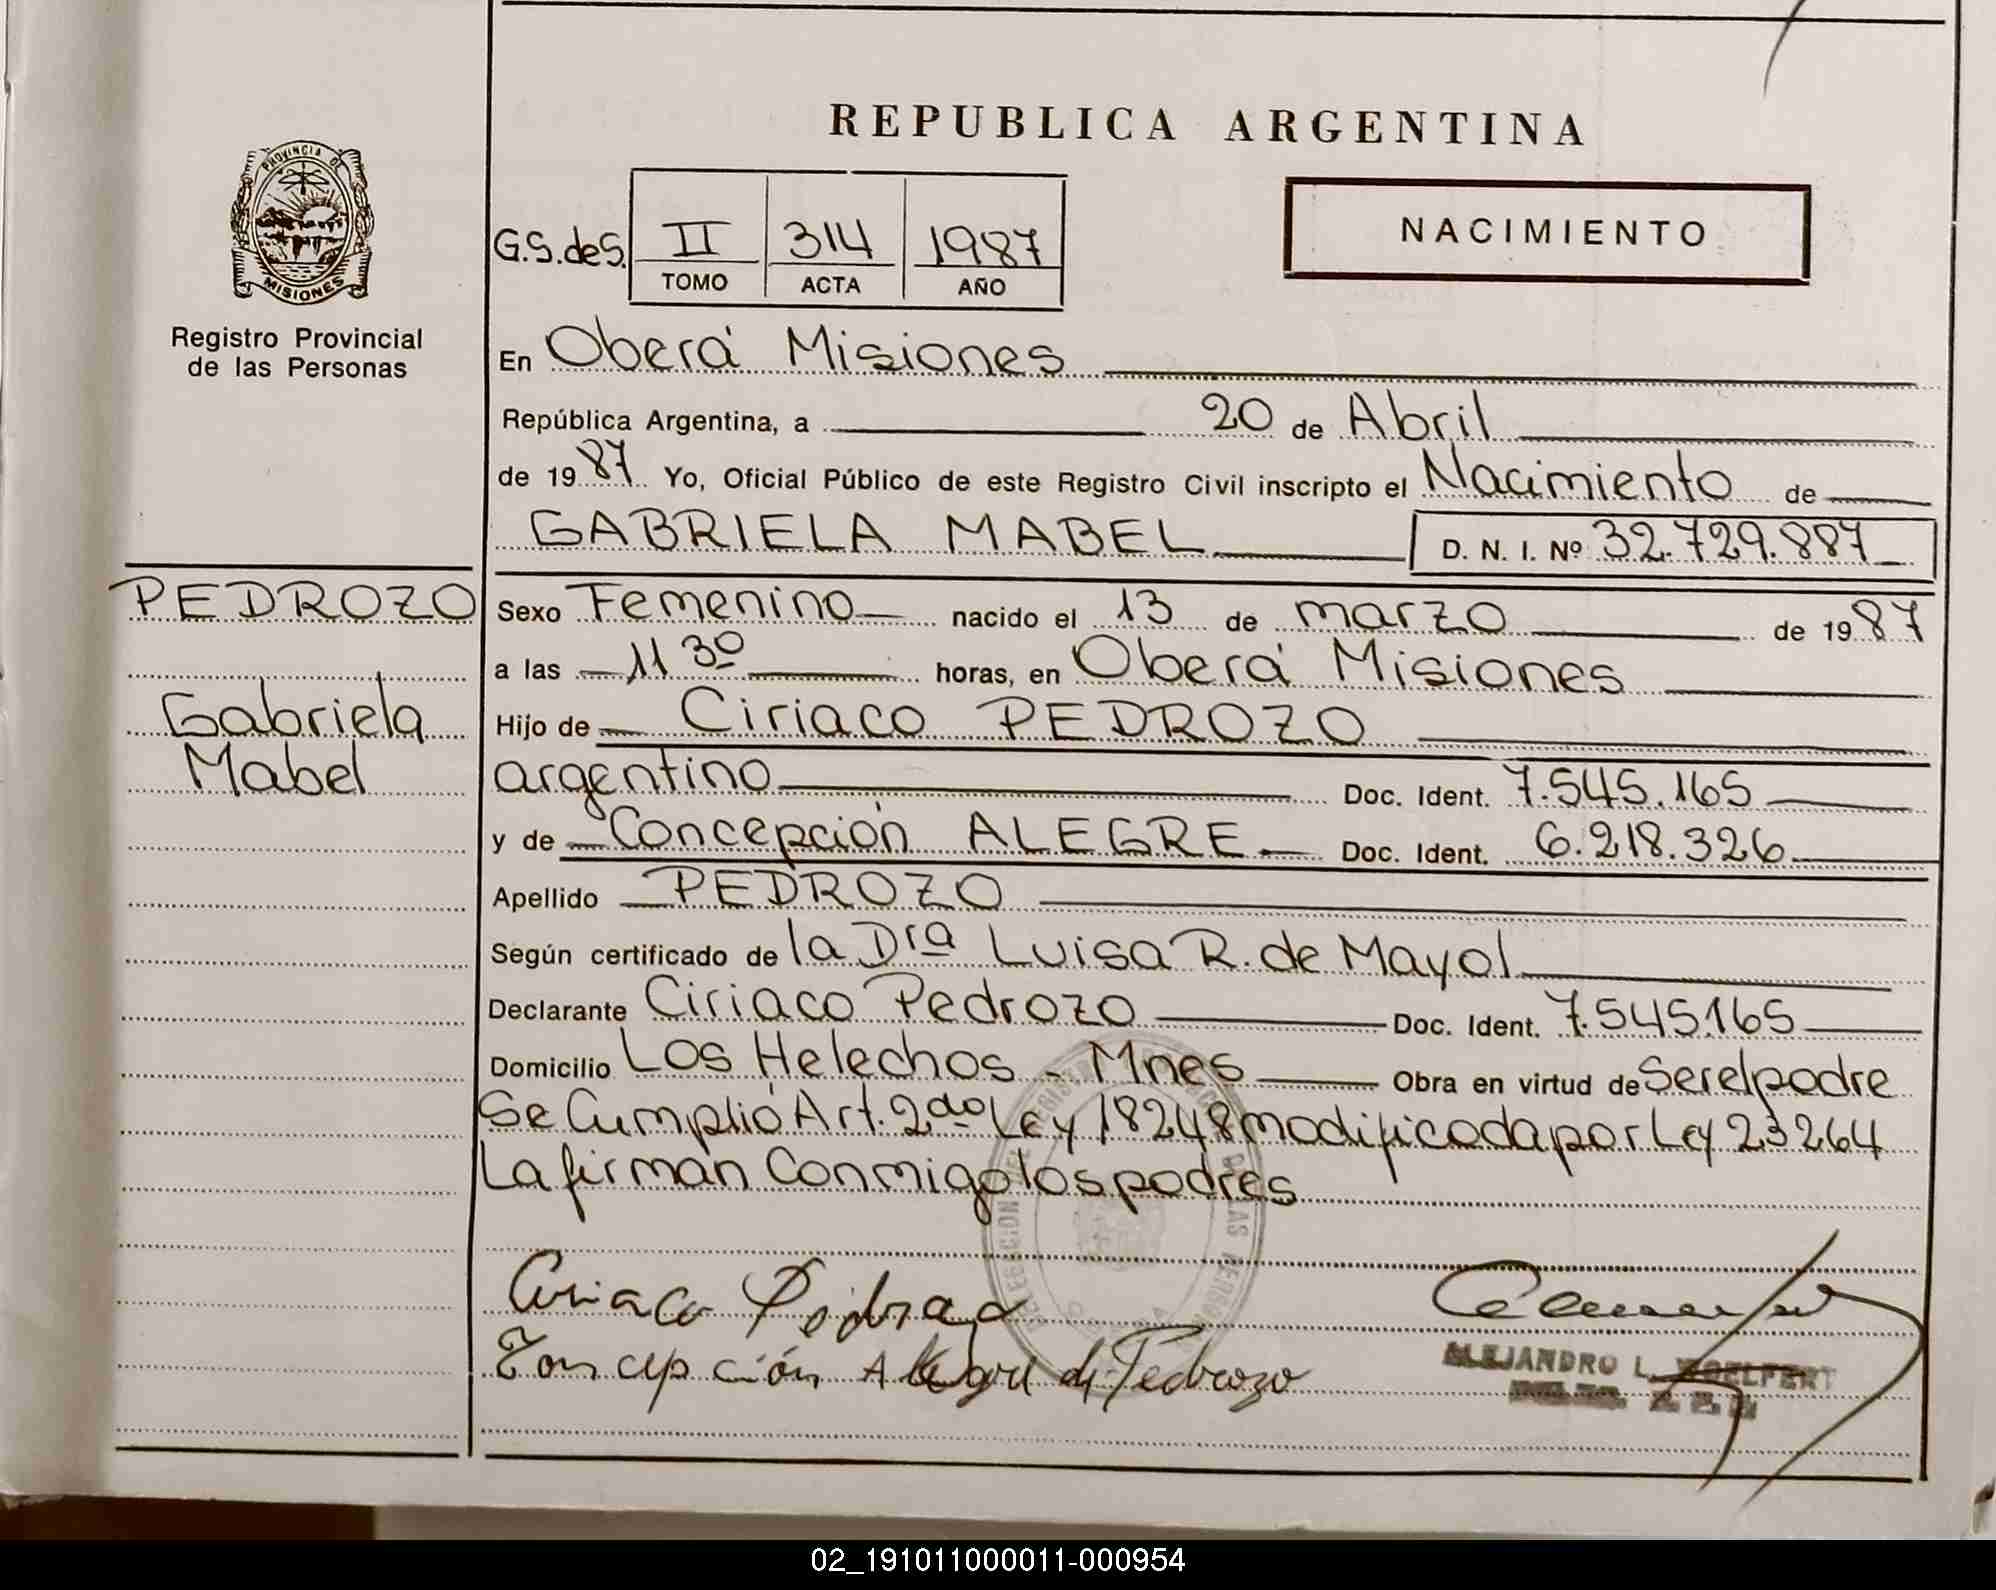 REPUBLICA ARGENTINA
PROVINCIA DE
MISIONES
Registro Provincial
de las Personas
G.S.deS. II 314 1987
TOMO ACTA AÑO
NACIMIENTO
En Oberá Misiones
República Argentina, a 20 de Abril
de 1987 Yo, Oficial Público de este Registro Civil inscripto el Nacimiento de
GABRIELA MABEL D. N. I. Nº 32.729.887
PEDROZO
Gabriela
Mabel
Sexo Femenino nacido el 13 de marzo de 1987
a las 11 30 horas, en Oberá Misiones
Hijo de Ciriaco PEDROZO
argentino Doc. Ident. 7.545.165
y de Concepción ALEGRE Doc. Ident. 6.218.326
Apellido PEDROZO
Según certificado de la Dra Luisa R. de Mayol
Declarante Ciriaco Pedrozo Doc. Ident. 7.545.165
Domicilio Los Helechos - Mnes Obra en virtud de Ser el padre
Se Cumplió Art. 2do Ley 18248 modificada por Ley 23264
La firman Conmigo los padres
Ciriaco Pedrozo
Concepción Alegre de Pedrozo
ALEJANDRO L.
02_191011000011-000954